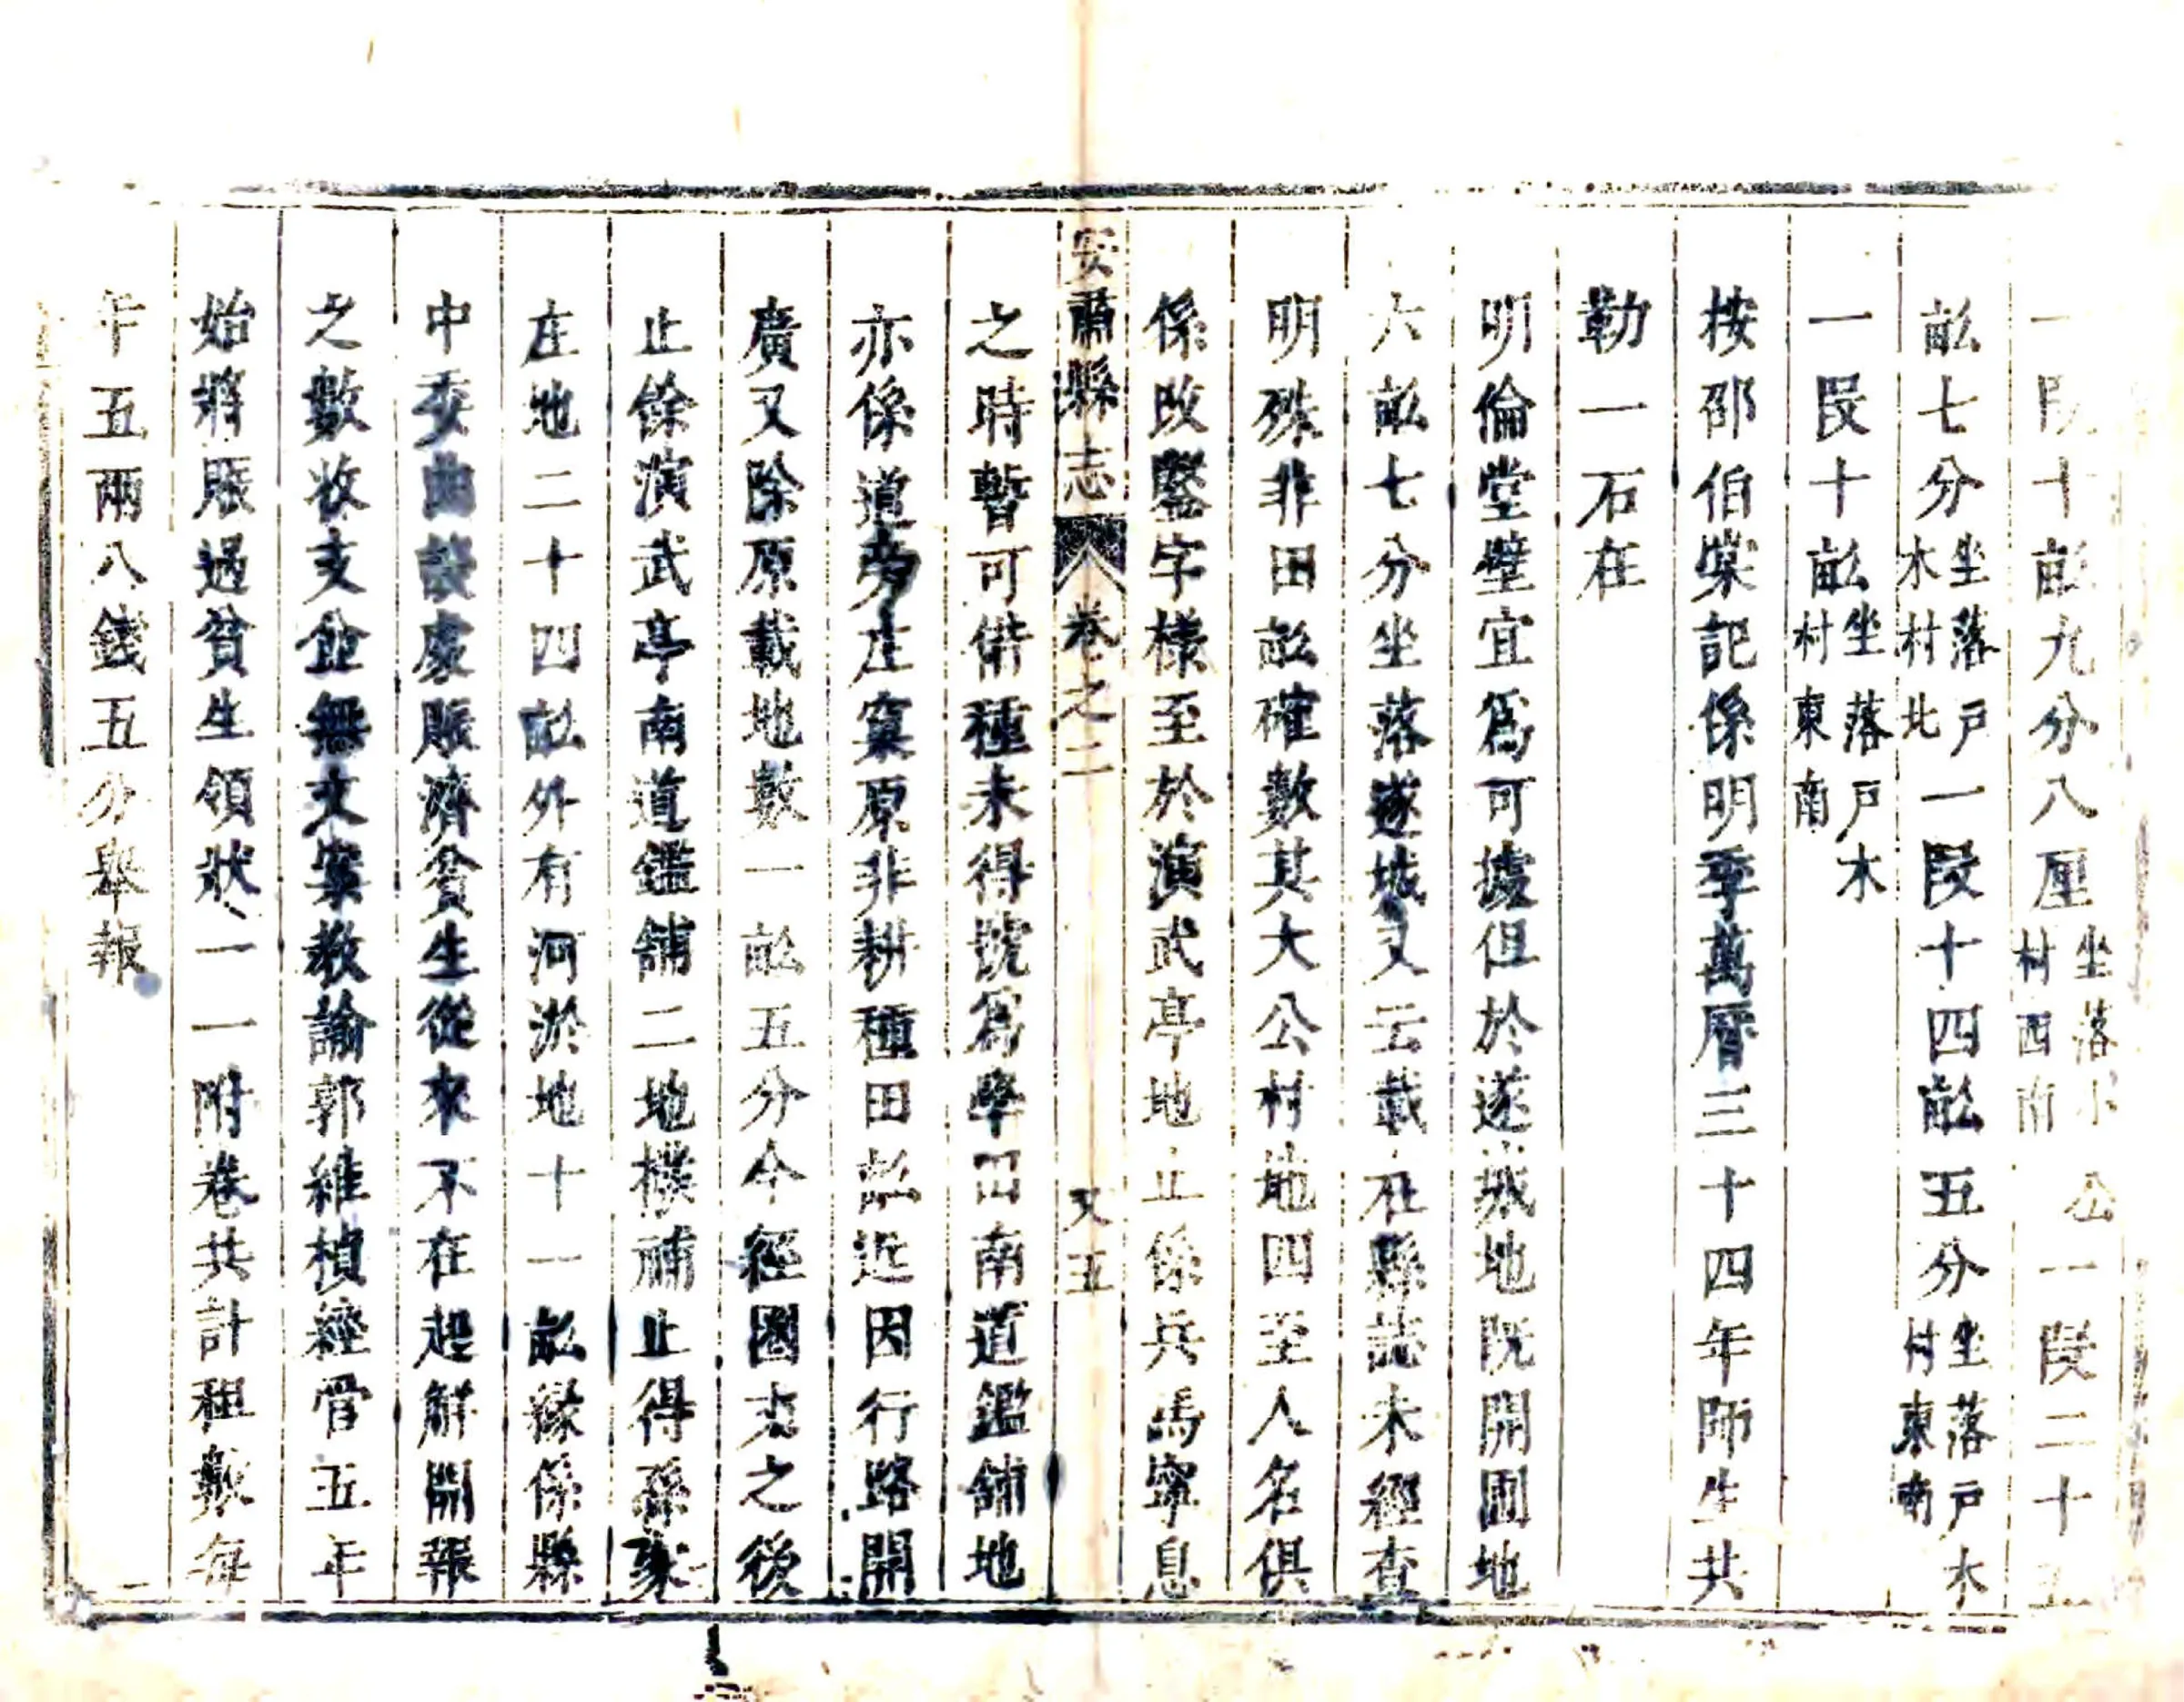 一段十畝九分八厘坐落小公村西南一段二十五
畝七分坐落戶木村北一段十四畝五分坐落戶木村東南
一段十畝坐落戶木村東南
按邵伯棠記係明季萬曆三十四年師生共
勒一石在
明倫堂壁宜爲可據但於遂城地既開圃地
六畝七分坐落遂城又云載在縣誌未經查
明殊非田畝確數其大公村地四至人名俱
係改鑿字樣至於演武亭地止係兵馬寧息
安肅縣志 卷之二 又五
之時暫可借種未得號爲學田南道鑑舖地
亦係道旁庄窠原非耕種田畝近因行路開
廣又除原載地數一畝五分今經國丈之後
止餘演武亭南道鑑舖二地撲補止得孫家
庄地二十四畝外有河淤地十一畝緣係縣
中委曲設處賑濟貧生從來不在起解開報
之數收支並無文案教諭郭維楨經管五年
始將賑過貧生領狀一一附卷共計租數每
年五兩八錢五分舉報